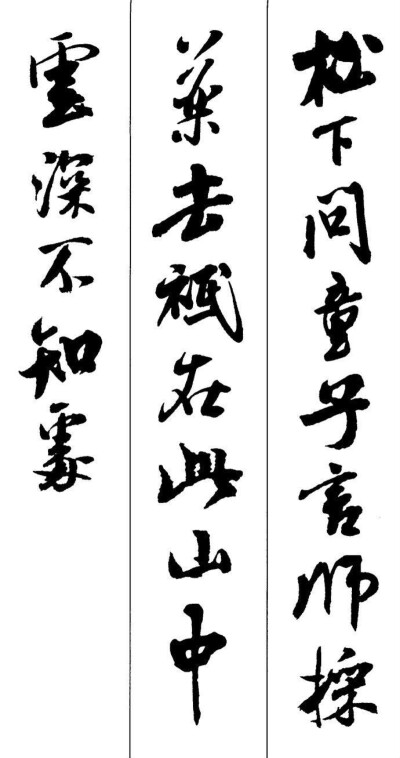 松下問童子言師採
藥去祇在此山中
雲深不知處